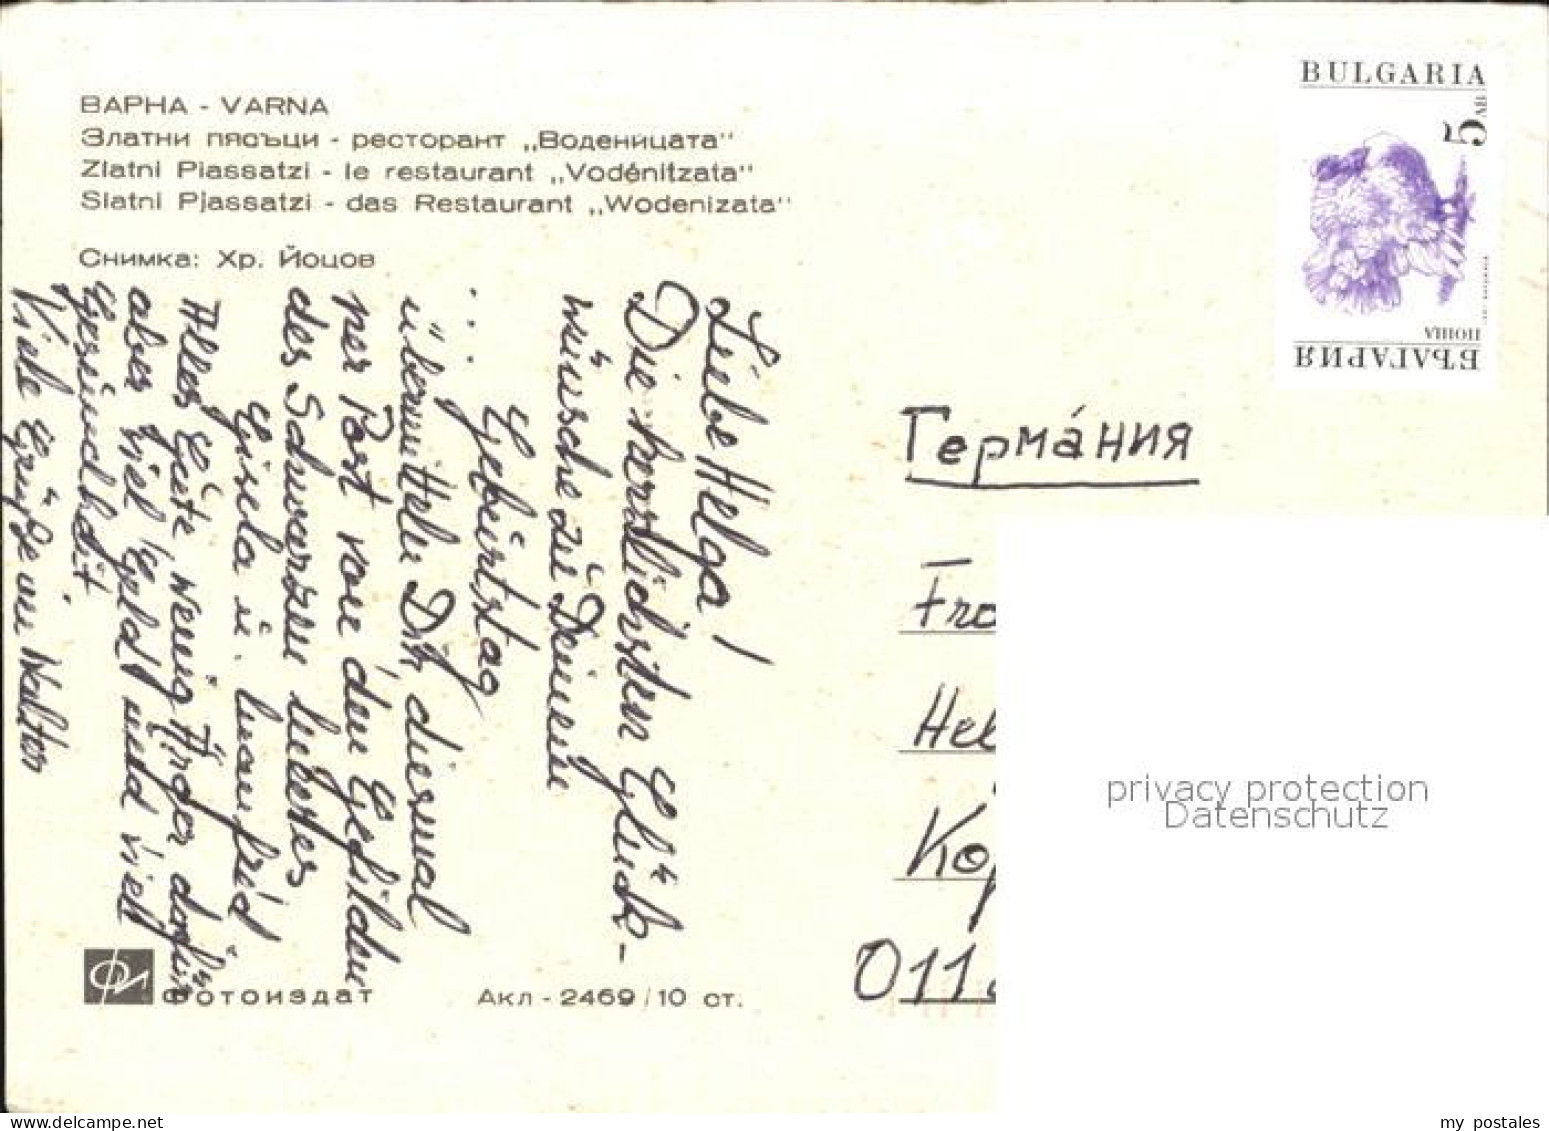 ВАРНА - VARNA
Златни пясъци - ресторант „Воденицата"
Zlatni Piassatzi - le restaurant „Vodénitzata"
Slatni Pjassatzi - das Restaurant „Wodenizata"
Снимка: Хр. Йоцов
BULGARIA
5 лв
ПОЩА
БЪЛГАРИЯ
Liebe Helga!
Die herzlichsten Glück-
wünsche zu Deinem
Geburtstag
übermitteln Dir, diesmal
per Post von den Gefilden
des Schwarzen Meeres
Gisela u. Manfred
Alles Gute, wenig Ärger dafür
aber viel Geld und viel
Gesundheit
Viele Grüße von Walter
Герма́ния
Fra
Hel
Köp
011
privacy protection
Datenschutz
Фотоиздат
Акл - 2469/10 ст.
my postales